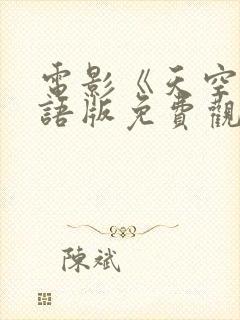 電影《天空
語版免費觀
陳斌